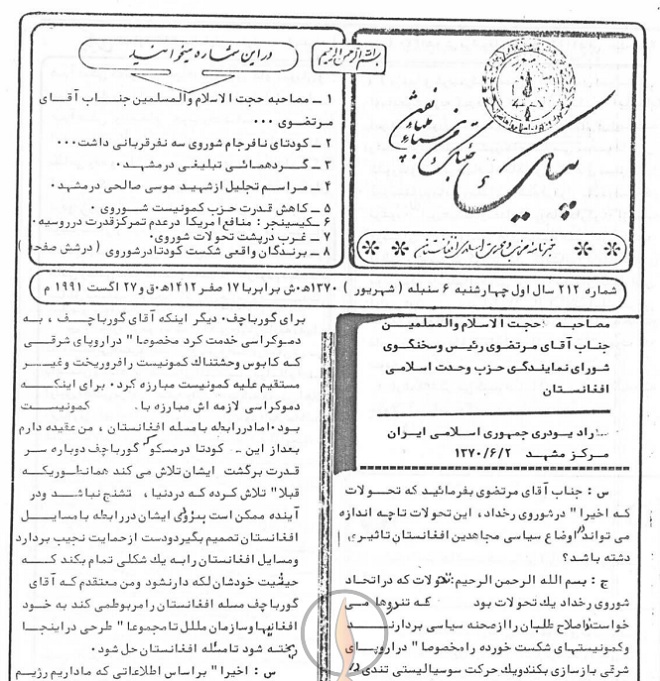 بسم الله الرحمن الرحیم
در این شماره میخوانید
۱ ــ مصاحبه حجت الاسلام والمسلمین جناب آقای
مرتضوی ۰۰۰
۲ ــ کودتای نافرجام شوروی سه نفر قربانی داشت۰۰۰
۳ ــ گردهمائی تبلیغی در مشهد۰
۴ ــ مراسم تجلیل از شهید موسی صالحی در مشهد۰
۵ ــ کاهش قدرت حزب کمونیست شوروی ۰
۶ ــ کیسینجر : منافع آمریکا در عدم تمرکز قدرت در روسیه۰
۷ ــ غرب در پشت تحولات شوروی۰
۸ ــ برندگان واقعی شکست کودتا در شوروی ( در شش صفحه )
پیام
خبرنامه حزب وحدت اسلامی افغانستان
شماره ۲۱۲ سال اول چهارشنبه ۶ سنبله ( شهریور ) ۱۳۷۰ه۰ش برابر با ۱۷ صفر ۱۴۱۲ه۰ق و ۲۷ اگست ۱۹۹۱ م
مصاحبه حجت الاسلام والمسلمین
جناب آقای مرتضوی رئیس وسخنگوی
شورای نمایندگی حزب وحدت اسلامی
افغانستان
راد یودری جمهوری اسلامی ایران
مرکز مشهد ۱۳۷۰/۶/۲
س : جناب آقای مرتضوی بفرمائید که تحولات
که اخیرا" در شوروی رخداد ، این تحولات تاچه اندازه
می تواند در اوضاع سیاسی مجاهدین افغانستان تاثیری
دشته باشد؟
ج : بسم الله الرحمن الرحیم: تحولات که در اتحاد
شوروی رخداد یك تحولات بود که تندروها می
خواست اصلاح طلبان را از صحنه سیاسی بردارند
وکمونیستهای شکست خورده را مخصوصا" در اروپای
شرقی باز سازی بکنند ویك حرکت سوسیالیستی تندی در
برای گورباچف۰ دیگر اینکه آقای گورباچف ، به
دموکراسی خدمت کرد مخصوصا" در اروپای شرقی
که کابوس وحشتناك کمونیست را فروریخت وغیر
مستقیم علیه کمونیست مبارزه کرد۰ برای اینکه
دموکراسی لازمه اش مبارزه با۰ کمونیست
بود۰ اما در رابطه با مسله افغانستان ، من عقیده دارم
بعد از این ــ کودتا در مسکو که گورباچف دوباره سر
قدرت برگشت ایشان تلاش می کند همانطوریکه
قبلا" تلاش کرده که در دنیا ، تشنج نباشد ودر
آینده ممکن است بزودی ایشان در رابطه با مسایل
افغانستان تصمیم بگیرد ودست از حمایت نجیب بردارد
ومسایل افغانستان را به یك شکلی تمام بکند که
حیثیت خودشان لکه دار نشود ومن معتقدم که آقای
گورباچف مسله افغانستان را مربوط می کند به خود
افغانیها وسازمان ملل تا مجموعا" طرحی در اینجا
ریخته شود تا مسله افغانستان حل شود۰
س : اخیرا" براساس اطلاعاتی که ما داریم رژیم